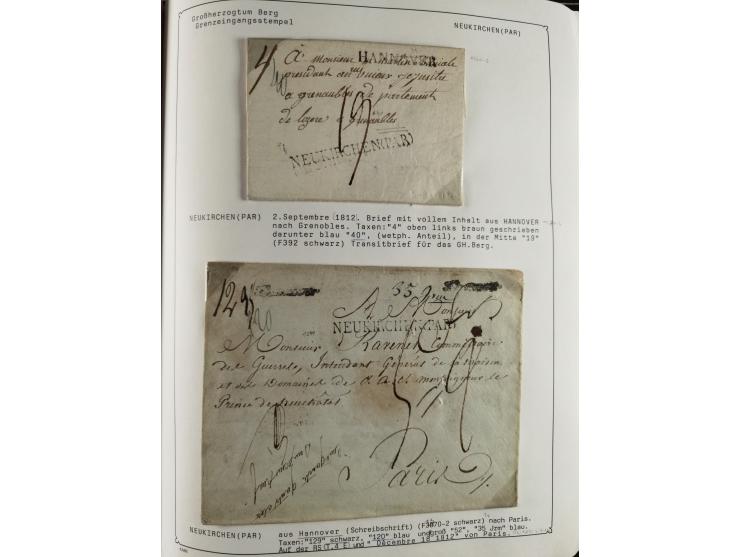 Großherzogtum Berg
Grenzeingangsstempel
NEUKIRCHEN(PAR)
4
HANNOVER
40
A monsieur
president
a grenoubles de partement
de lozere a grenoubles
19
NEUKIRCHEN(PAR)
NEUKIRCHEN(PAR) 2.Septembre 1812. Brief mit vollem Inhalt aus HANNOVER
nach Grenobles. Taxen:"4" oben links braun geschrieben
darunter blau "40", (wetph. Anteil), in der Mitte "19"
(F392 schwarz) Transitbrief für das GH.Berg.
129
120
35 Jrm
A Monsieur
NEUKIRCHEN(PAR)
Monsieur Ravenel Commissaire
des Guerres, Intendant Général de la maison
et des Domaines de S. A. S. monseigneur le
Prince de Neuchâtel
52
Paris
NEUKIRCHEN(PAR) aus Hannover (Schreibschrift) (F3070-2 schwarz) nach Paris.
Taxen:"129" schwarz, "120" blau und groß "52", "35 Jrm" blau.
Auf der RS(T.4 E) und " Décembre 18 1812" von Paris.